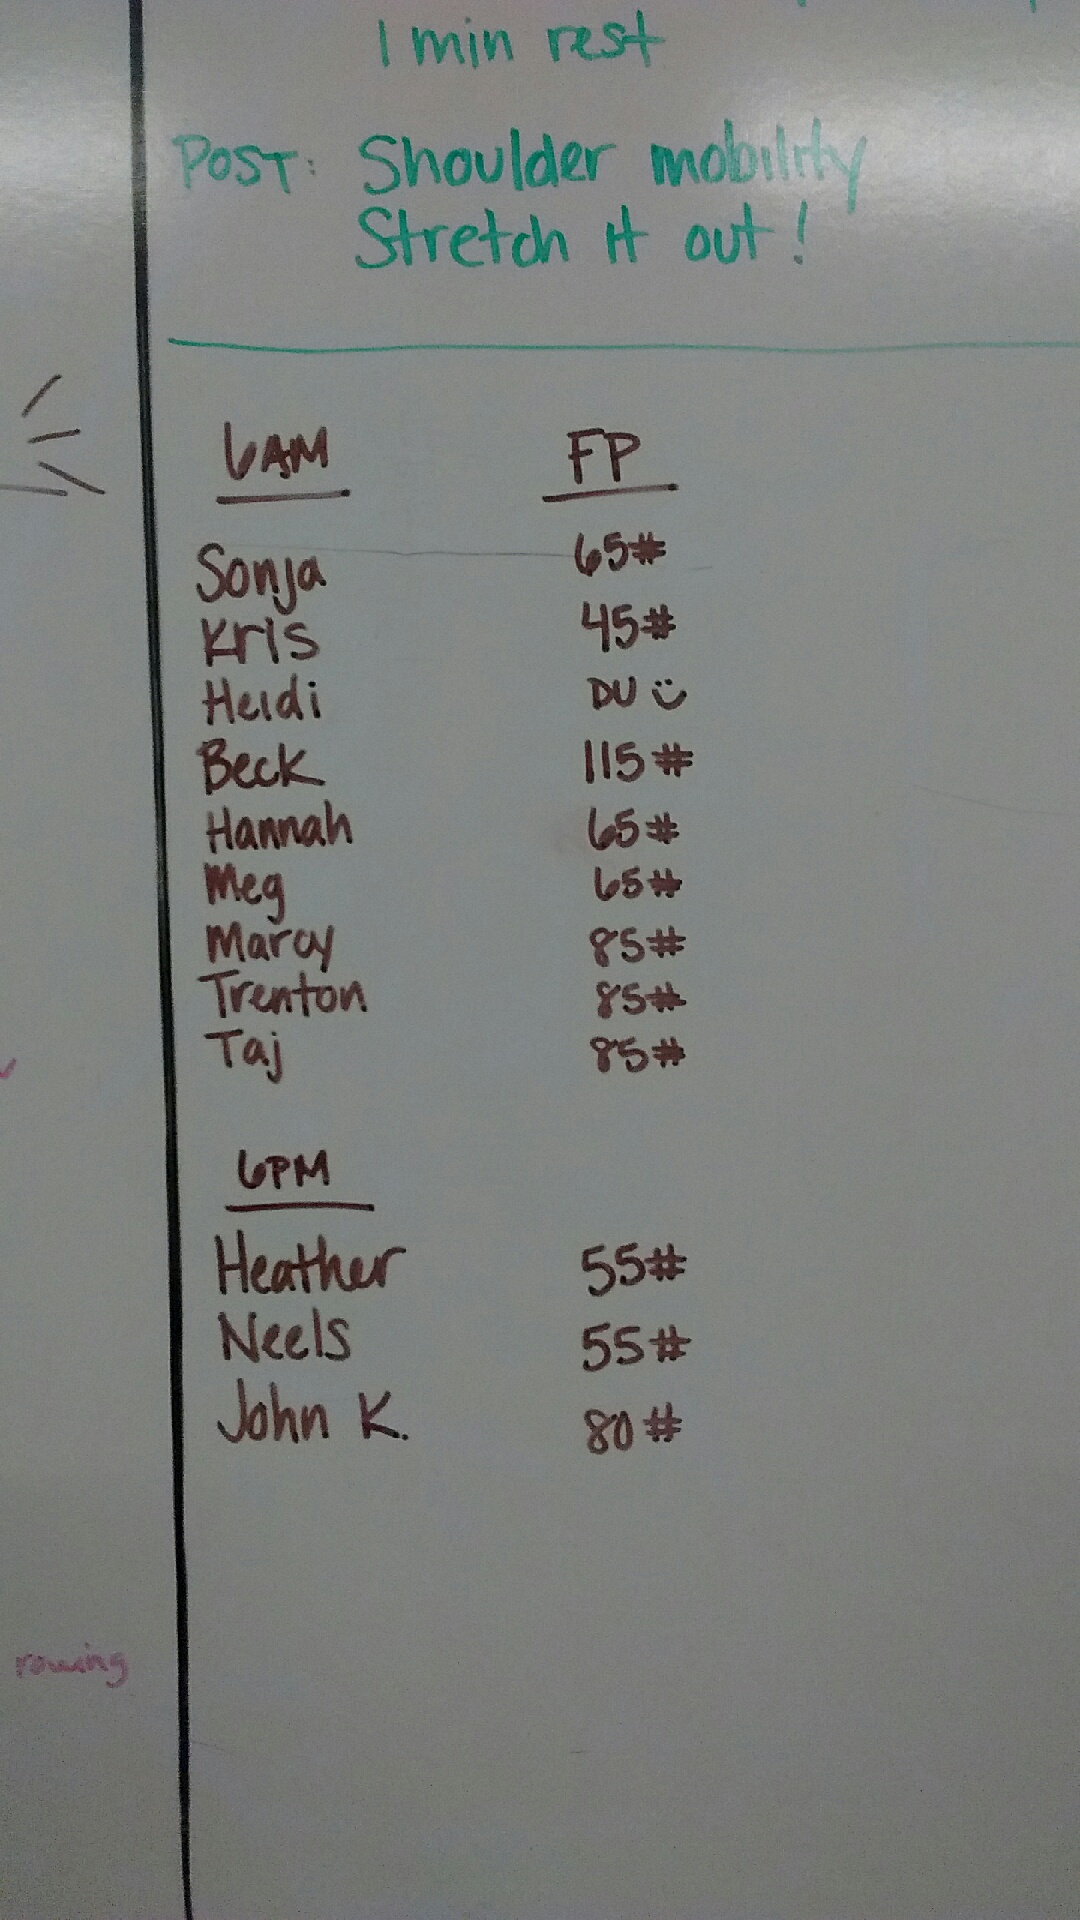 1 min rest
POST: Shoulder mobility
Stretch it out!
6AM FP
Sonja 65#
Kris 45#
Heidi DU
Beck 115#
Hannah 65#
Meg 65#
Marcy 85#
Trenton 85#
Taj 85#
6PM
Heather 55#
Neels 55#
John K. 80#
rowing